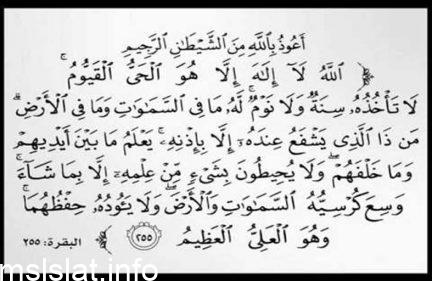 أَعُوذُ بِاللَّهِ مِنَ الشَّيْطَانِ الرَّجِيمِ
اللَّهُ لَآ إِلَٰهَ إِلَّا هُوَ الْحَيُّ الْقَيُّومُ ۚ
لَا تَأْخُذُهُۥ سِنَةٌ وَلَا نَوْمٌ ۚ لَّهُۥ مَا فِي السَّمَٰوَٰتِ وَمَا فِي الْأَرْضِ ۗ
مَن ذَا الَّذِي يَشْفَعُ عِندَهُۥٓ إِلَّا بِإِذْنِهِۦ ۚ يَعْلَمُ مَا بَيْنَ أَيْدِيهِمْ
وَمَا خَلْفَهُمْ ۖ وَلَا يُحِيطُونَ بِشَيْءٍ مِّنْ عِلْمِهِۦٓ إِلَّا بِمَا شَآءَ ۚ
وَسِعَ كُرْسِيُّهُ السَّمَٰوَٰتِ وَالْأَرْضَ ۖ وَلَا يَـُٔودُهُۥ حِفْظُهُمَا ۚ
وَهُوَ الْعَلِيُّ الْعَظِيمُ ٢٥٥ البقرة: ٢٥٥
mslslat.info